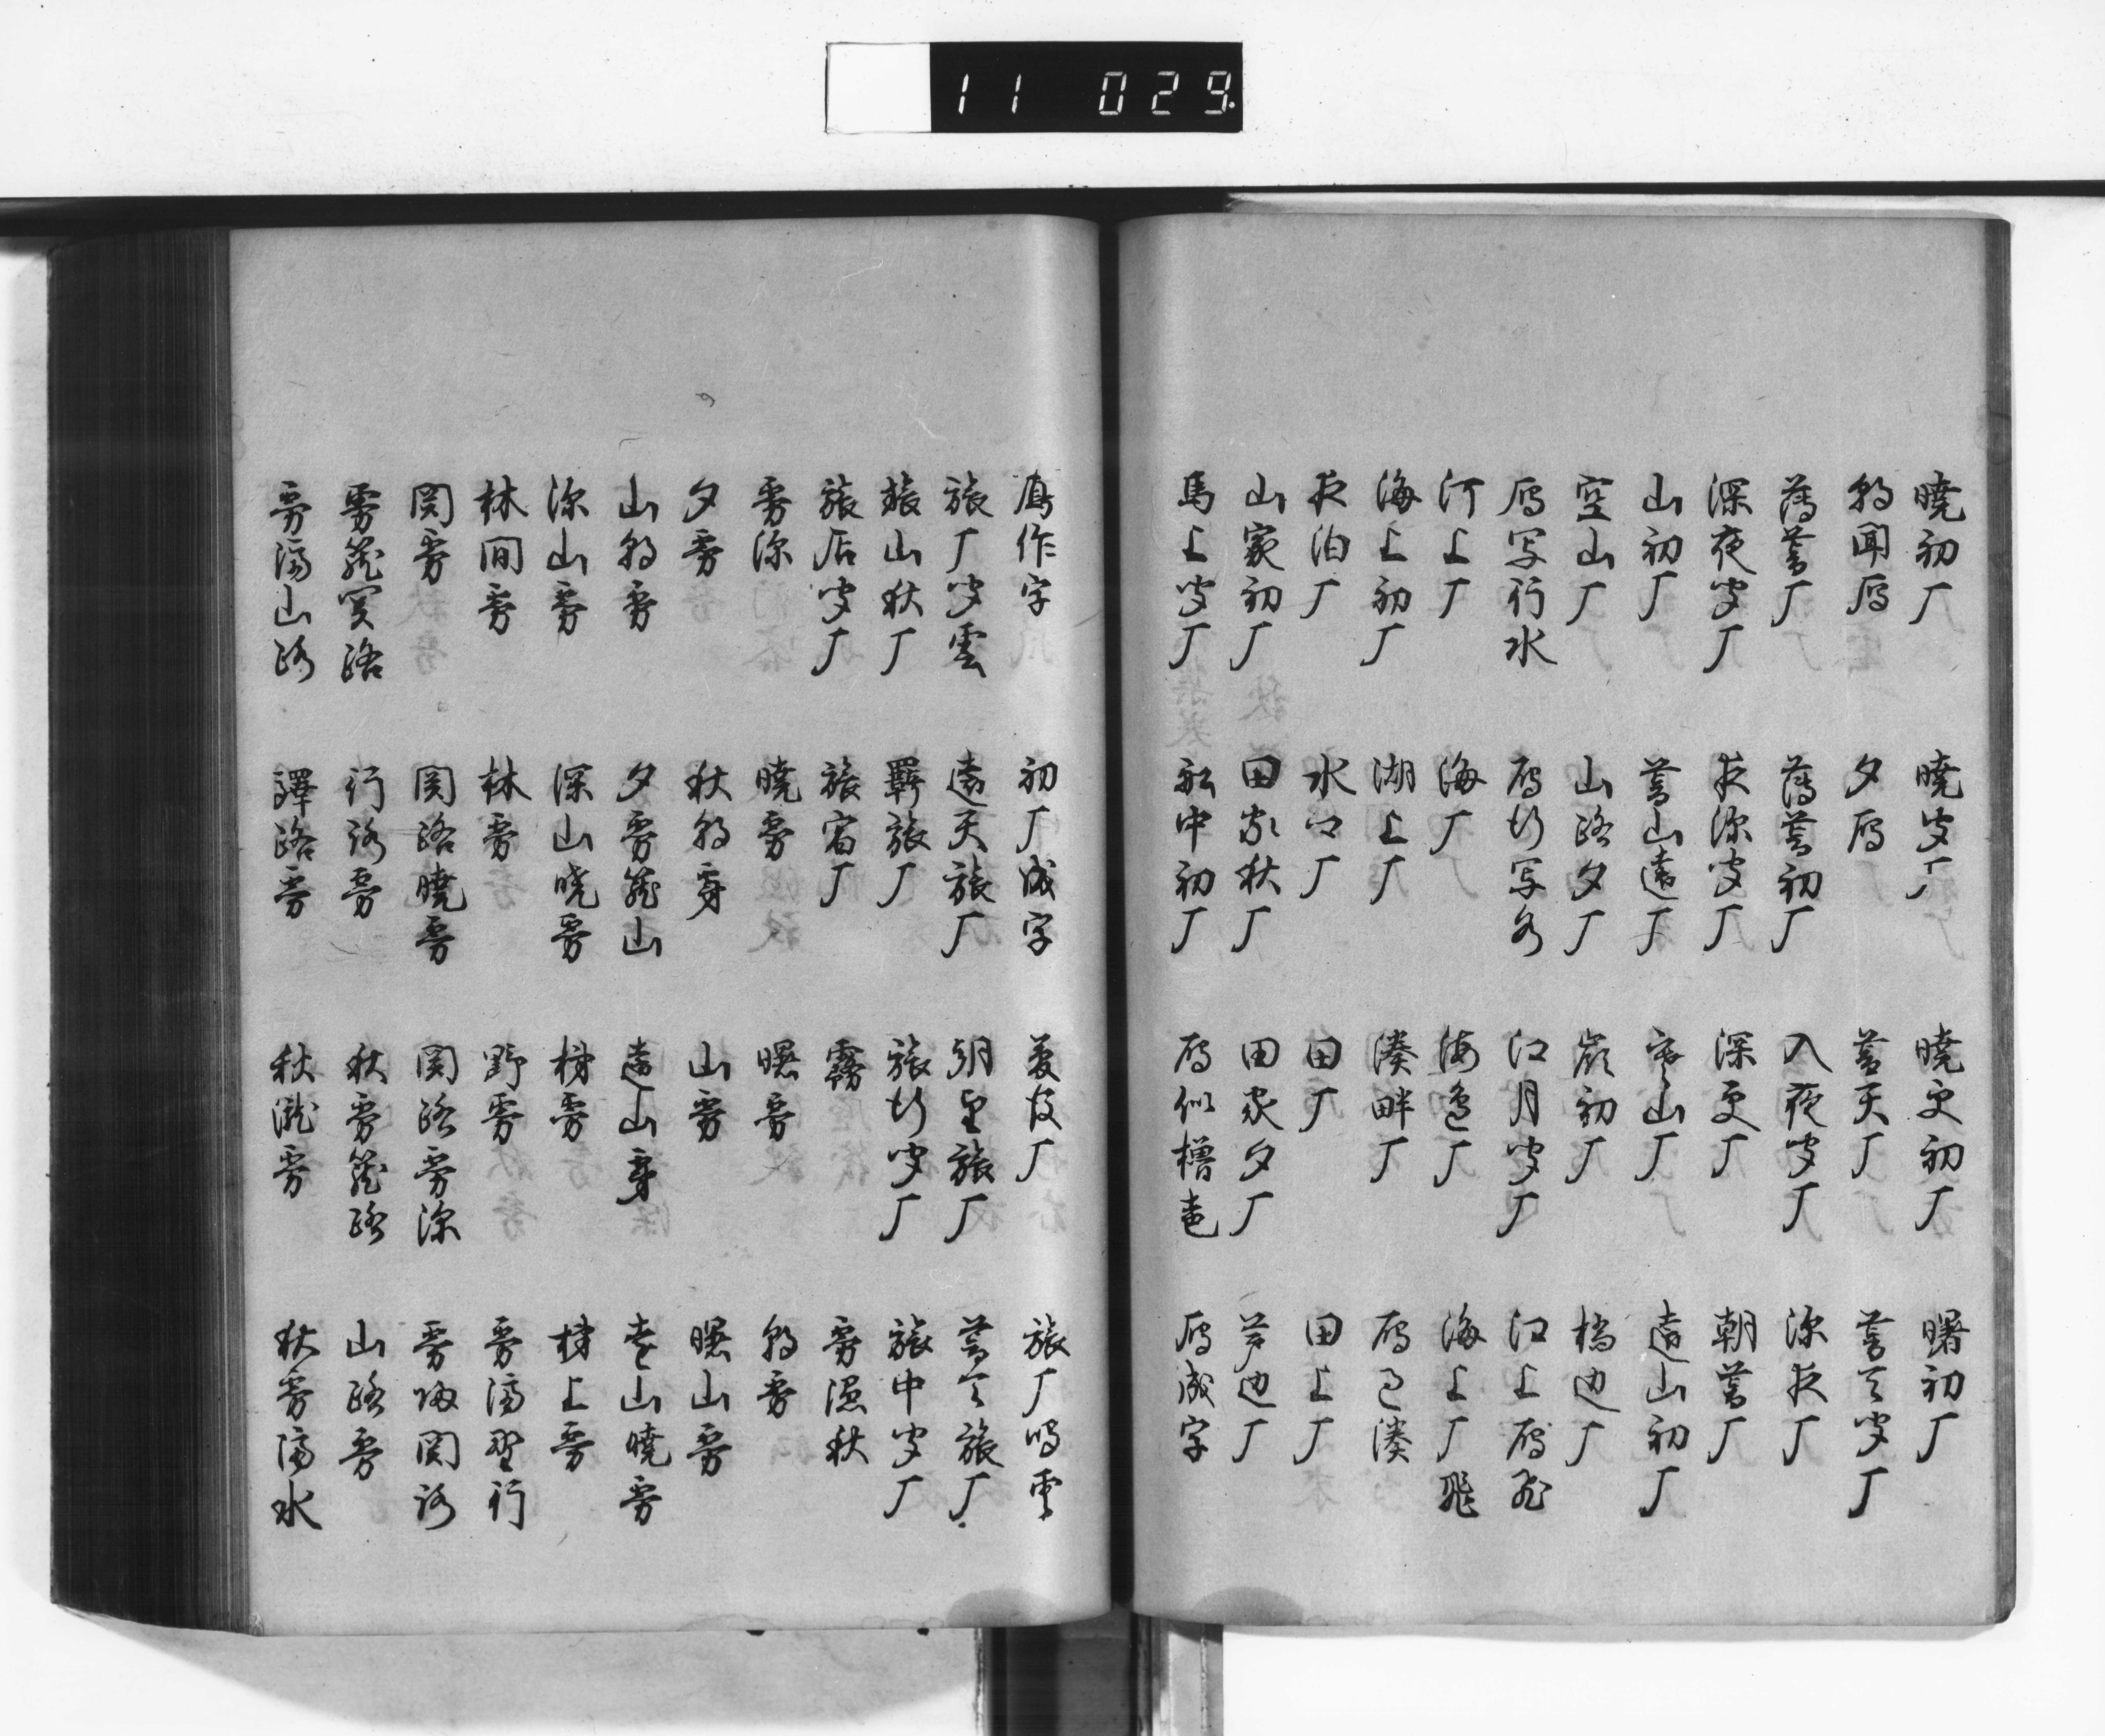 11 029
暁初厂 暁聞厂 暁更初厂 曙初厂
朝聞雁 夕雁 暮天厂 暮天聞厂
薄暮厂 薄暮初厂 入夜聞厂 深夜厂
深夜聞厂 夜深聞厂 深更厂 朝暮厂
山初厂 暮山遠厂 寒山厂 遠山初厂
空山厂 山路夕厂 嶺初厂 橋辺厂
雁写行水 雁行写水 江月聞厂 江上雁飛
河上厂 海厂 海辺厂 海上厂飛
海上初厂 湖上厂 湊畔厂 雁過湊
夜泊厂 水郷厂 田厂 田上厂
山家初厂 田家秋厂 田家夕厂 芦辺厂
馬上聞厂 船中初厂 雁似櫓声 雁成字
雁作字 初厂成字 厂 旅厂鳴雲
旅厂聞雲 遠天旅厂 朝望旅厂 暮天旅厂
旅山秋厂 羇旅厂 旅行聞厂 旅中聞厂
旅店聞厂 旅宿厂 霧 霧湿秋
霧深 暁霧 曙霧 朝霧
夕霧 秋朝霧 山霧 曙山霧
山朝霧 夕霧籠山 遠山霧 遠山暁霧
深山霧 深山暁霧 霧 上霧
林間霧 林霧 野霧 霧隔野行
関霧 関路暁霧 関路霧深 霧埋関路
霧籠関路 行路霧 秋霧籠路 山路霧
霧隔山路 駅路霧 秋滝霧 秋霧隔水